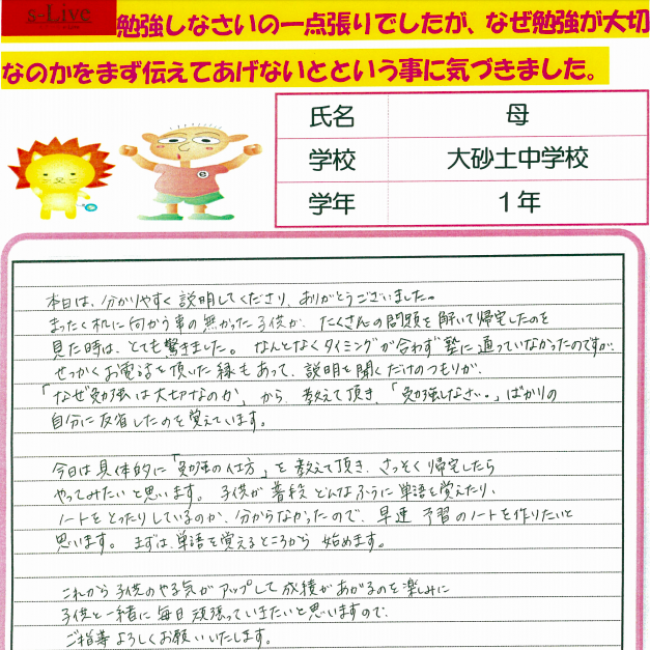 s-Live
勉強しなさいの一点張りでしたが、なぜ勉強が大切
なのかをまず伝えてあげないとという事に気づきました。
氏名 母
学校 大砂土中学校
学年 1年
e
本日は、分かりやすく説明してくださり、ありがとうございました。
まったく机に向かう事の無かった子供が、たくさんの問題を解いて帰宅したのを
見た時は、とても驚きました。なんとなくタイミングが合わず塾に通っていなかったのですが、
せっかくお電話を頂いた縁もあって、説明を聞くだけのつもりが、
「なぜ勉強は大切なのか」から、教えて頂き、「勉強しなさい。」ばかりの
自分に反省したのを覚えています。
今日は具体的に「勉強の仕方」を教えて頂き、さっそく帰宅したら
やってみたいと思います。子供が普段どんなふうに単語を覚えたり、
ノートをとったりしているのか、分からなかったので、早速予習のノートを作りたいと
思います。まずは、単語を覚えるところから始めます。
これから子供のやる気がアップして成績があがるのを楽しみに
子供と一緒に毎日頑張っていきたいと思いますので、
ご指導よろしくお願いいたします。